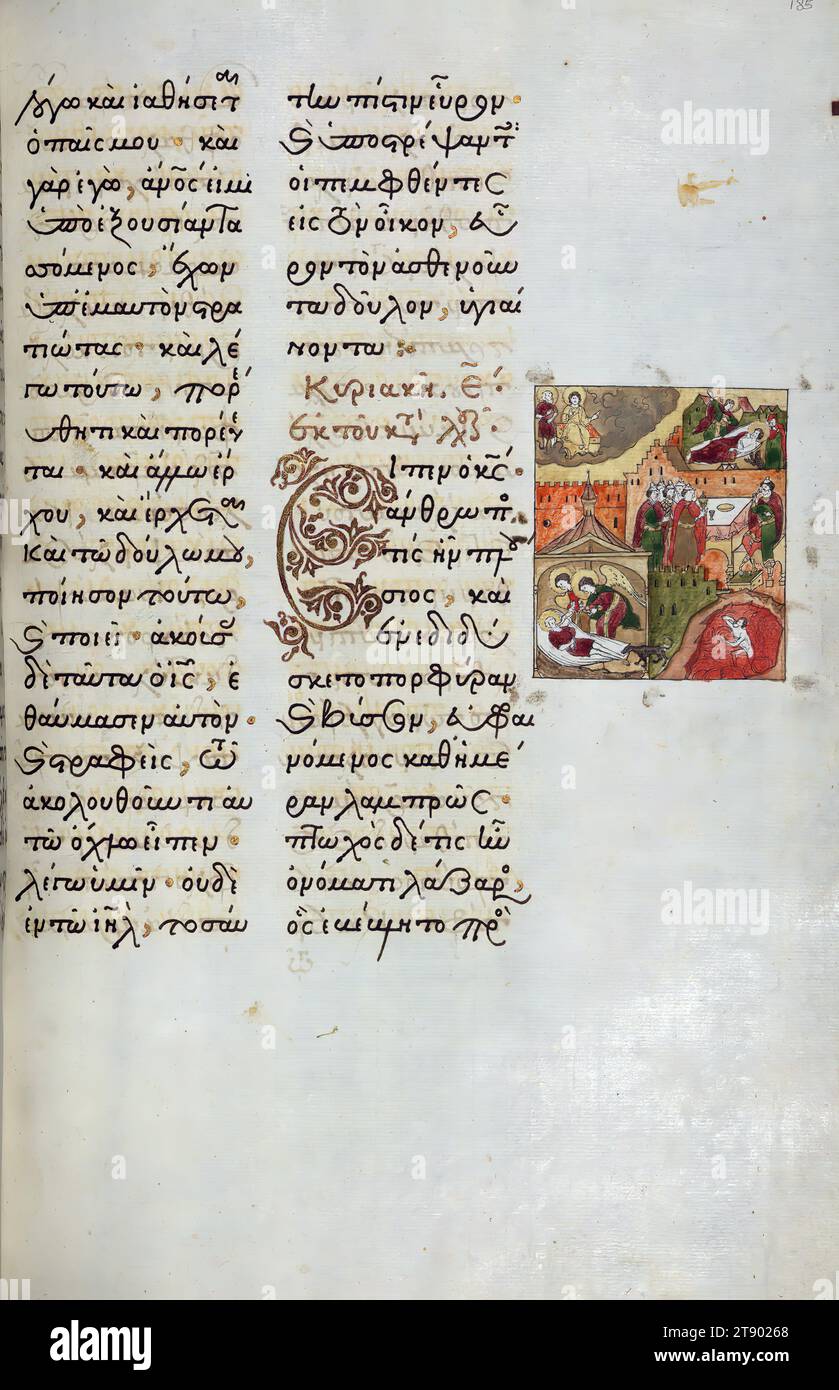 185
λόγω καὶ ἰαθήσεται
ὁ παῖς μου · καὶ
γὰρ ἐγὼ, ἄνος εἰμὶ
ὑπὸ ἐξουσίαν τα
σσόμενος, ἔχων
ὑπ' ἐμαυτὸν στρα
τιώτας · καὶ λέ
γω τούτω, πορεύ
θητι καὶ πορεύε
ται · καὶ ἄλλω ἔρ
χου, καὶ ἔρχεται
Καὶ τῶ δούλω μου,
ποίησον τοῦτο,
καὶ ποιεῖ · ἀκούσας
δὲ ταῦτα ὁ ις, ἐ
θαύμασεν αὐτὸν ·
καὶ στραφεὶς, τῶ
ἀκολουθοῦντι αὐ
τῶ ὄχλω εἶπεν ·
λέγω ὑμῖν · οὐδὲ
ἐν τῶ ιηλ, τοσαύ
την πίστιν εὗρον ·
καὶ ὑποστρέψαντες
οἱ πεμφθέντες
εἰς τὸν οἶκον, εὗ
ρον τὸν ἀσθενοῦν
τα δοῦλον, ὑγιαί
νοντα :
Κυριακῆ, ε
ἐκ τοῦ κατὰ λουκ.
Εἶπεν ὁ κς ·
ἄνθρωπος
τις ἦν πλού
σιος, καὶ
ἐνεδιδύ
σκετο πορφύραν
καὶ βύσσον, εὐφραι
νόμενος καθ' ἡμέ
ραν λαμπρῶς ·
πτωχὸς δέ τις ἦν
ὀνόματι λάζαρος,
ὃς ἐβέβλητο πρὸς
alamy
alamy
alamy
Image ID: 2T90268
www.alamy.com